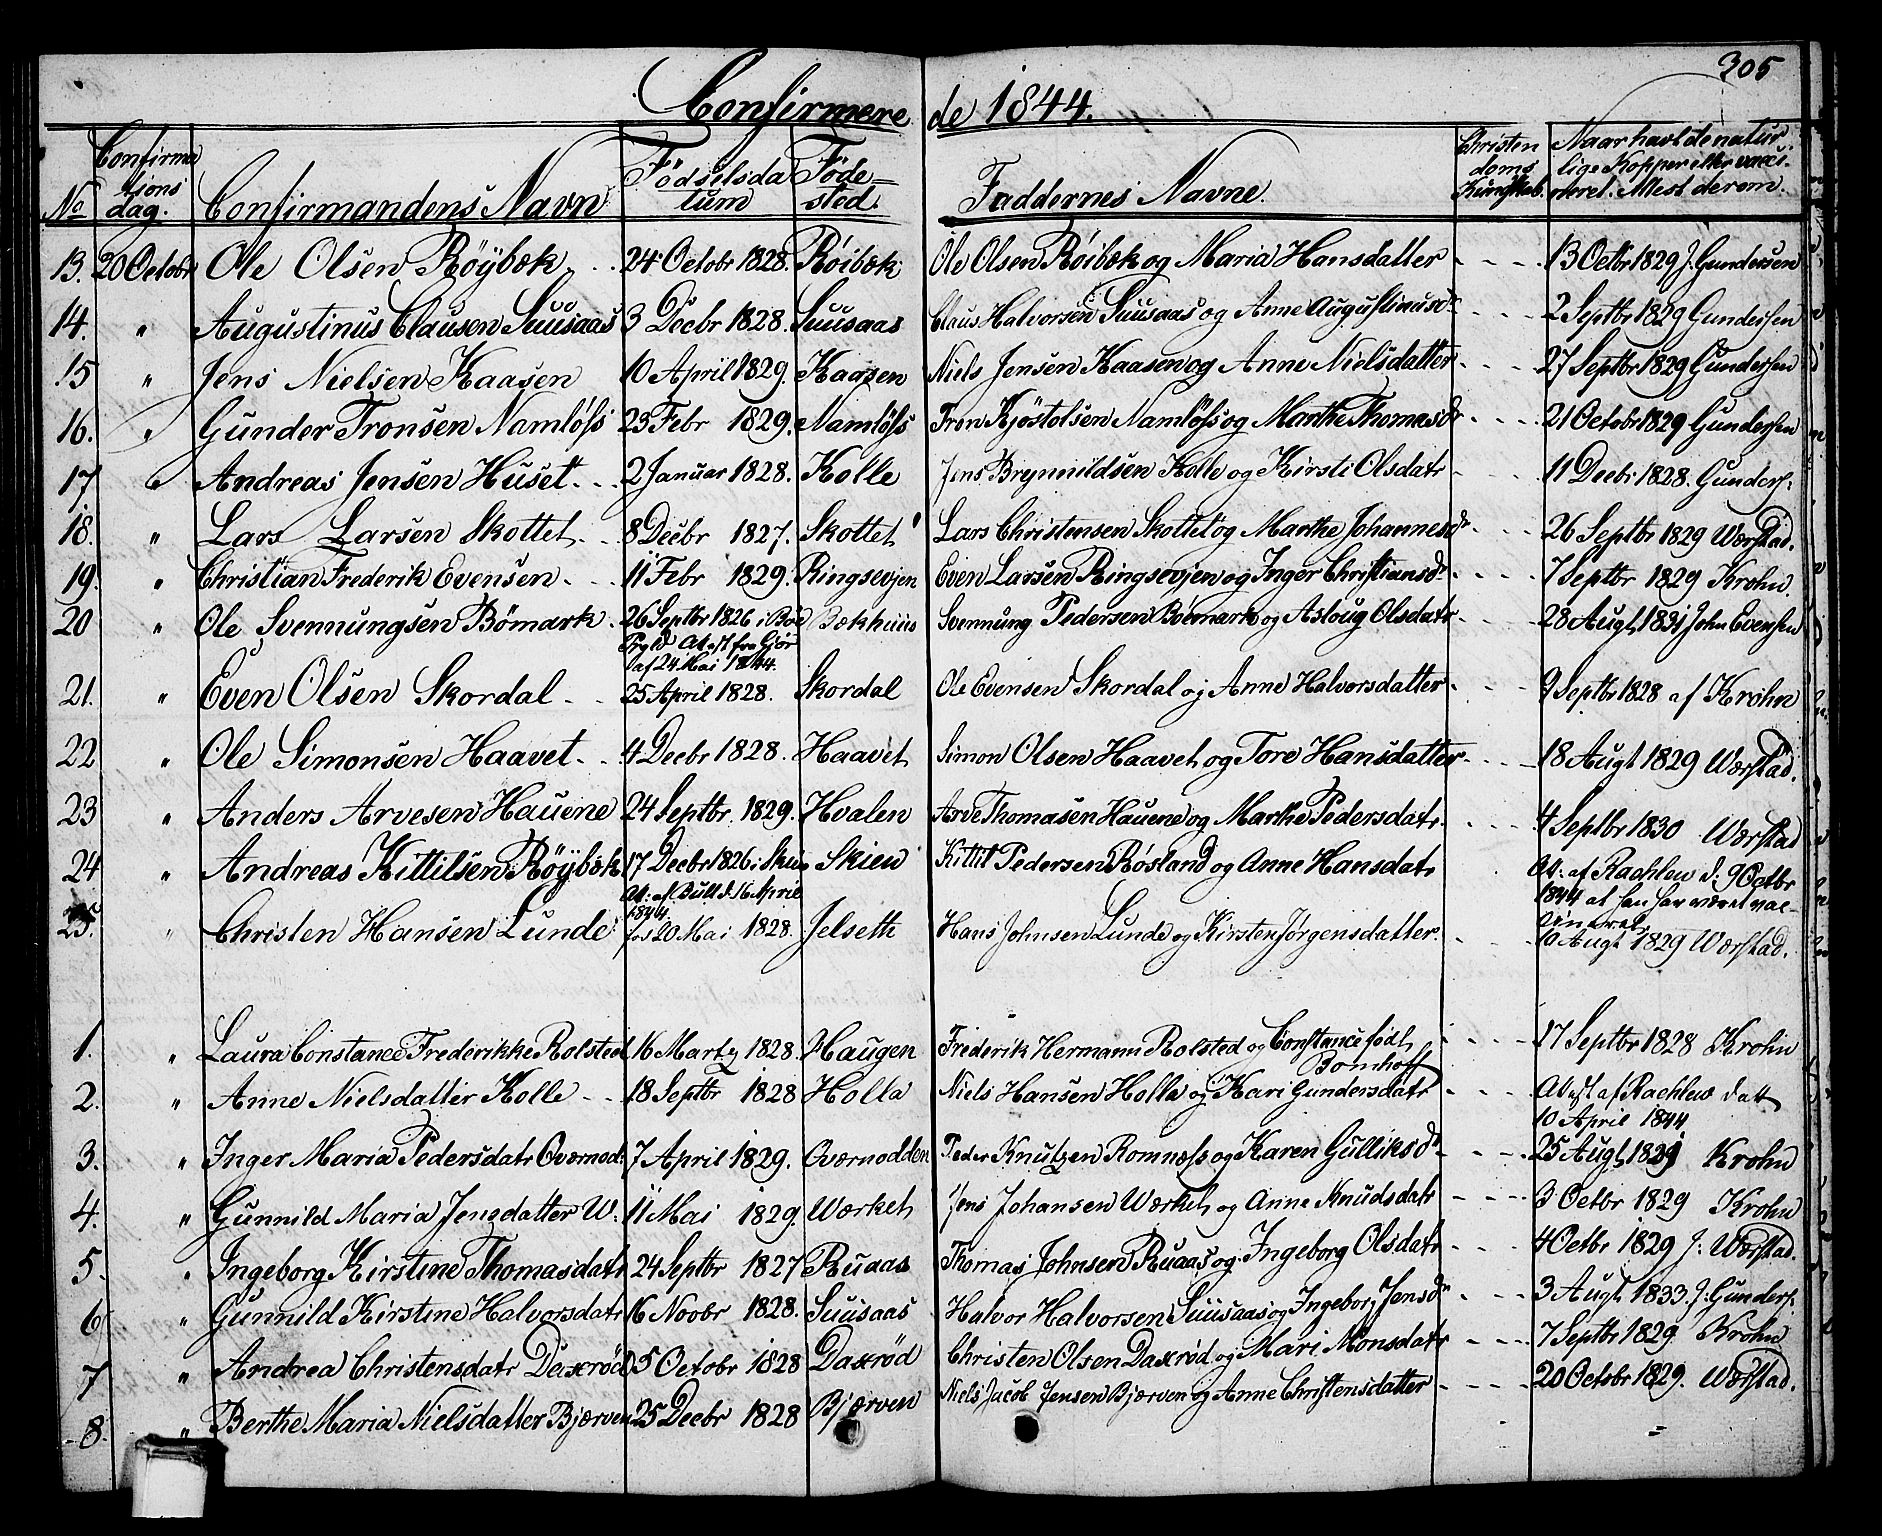 305
Confirmerede 1844.
No Confirmationsdag. Confirmandens Navn Födselsdatum Födested Faddernes Navne. Christendoms Kundskab. Naar havt de naturlige Kopper eller vaccineret. Attest derom.
13. 20 Octobr Ole Olsen Röybæk 24 Octobr 1828. Röibæk Ole Olsen Röibæk og Maria Hansdatter 13 Octbr 1829 J. Gundersen
14. " Augustinus Clausen Suusaas 3 Decbr 1828. Suusaas Claus Halvorsen Suusaas og Anne Augustinusdr 2 Septbr 1829 Gundersen
15 " Jens Nielsen Kaasen 10 April 1829. Kaasen Niels Jensen Kaasen og Anne Nielsdatter 27 Septbr 1829 Gundersen
16. " Gunder Tronsen Namlöfs 23 Febr 1829. Namlöfs Tron Kjöstolsen Namlöfs og Marthe Thomasdr 21 Octobr 1829 Gundersen
17 " Andreas Jensen Huset 2 Januar 1828. Kolle Jens Brynnildsen Kolle og Kirsti Olsdatr 11 Decbr 1828. Gunders.
18. " Lars Larsen Skottet 8 Decbr 1827. Skottet Lars Christensen Skottet og Marthe Johannesdr 26 Septbr 1829 Værstad.
19. " Christian Frederik Evensen 11 Febr 1829. Ringsevjen Even Larsen Ringsevjen og Inger Christiansdr 7 Septbr 1829 Krohn.
20 " Ole Svennungsen Bömark 26 Septbr 1826 i Boe Bækhuus Svennung Pedersen Böemark og Asloug Olsdatr 28 Augt 1831 John Evensen
Pgld Attest fra Gjör
af 24 Mai 1844.
21. " Even Olsen Skordal 25 April 1828. Skordal Ole Evensen Skordal og Anne Halvorsdatter 9 Septbr 1828 af Krohn
22 " Ole Simonsen Haavet 4 Decbr 1828. Haavet Simon Olsen Haavet og Tore Hansdatter 18 Augt 1829 Værstad.
23 " Anders Arvesen Hauene 24 Septbr. 1829. Hvalen Arve Thomasen Hauene og Marthe Pedersdatr. 4 Septbr 1830 Værstad
24 " Andreas Kittilsen Röybæk 17 Decbr 1826 i Skien Skien Kittil Pedersen Rösland og Anne Hansdatr Att: af Rachlew d: 9 Octbr
Att: af Bull d. 16 April 1844 at han har været vac-
1844. cineret
25. " Christen Hansen Lunde 20 Mai 1828. Jelseth Hans Johnsen Lunde og Kirsten Jörgensdatter. 10 Augt 1829 Værstad.
1. " Laura Constance Frederikke Rolsted 16 Martz 1828. Haugen Frederik Hermann Rolsted og Constance född 17 Septbr 1828 Krohn
Bomhoff
2. " Anne Nielsdatter Kolle 18 Septbr 1828 Holla Niels Hansen Holla og Kari Gundersdatr Attest af Rachlew datt
10 April 1844
3. " Inger Maria Pedersdatr Overnod: 7 April 1829. Overnodden Peder Knutzen Romnæss og Karen Gulliksdr 25 Augt 1829 Krohn
4. " Gunnild Maria Jensdatter W. 11 Mai 1829. Værket Jens Johansen Værket og Anne Knudsdatr 3 Octbr 1829 Krohn
5. " Ingeborg Kirstine Thomasdatr 24 Septbr 1827 Ruaas Thomas Johnsen Ruaas og Ingeborg Olsdatr 4 Octbr 1829 J: Værstad.
6 " Gunnild Kirstine Halvorsdatr 16 Novbr 1828. Suusaas Halvor Halvorsen Suusaas og Ingeborg Jensdr 3 Augt 1833. J: Gunders.
7 " Andrea Christensdatr Daxröd 5 Octobr 1828 Daxröd Christen Olsen Daxröd og Mari Monsdatr 7 Septbr 1829. Krohn
8. " Berthe Maria Nielsdatter Bjærven 25 Decbr 1828 Bjærven Niels Jacob Jensen Bjærven og Anne Christensdatter 20 Octobr 1829. Værstad.